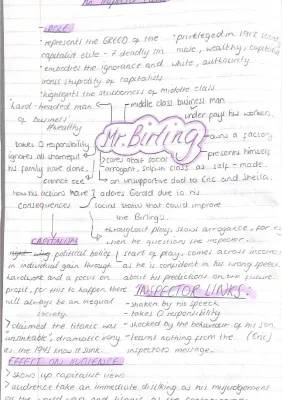 Mr Inspector Calls
- ROLE
- represents the GREED of the
capitalist elite - 7 deadly sin
- embodies the ignorance and
ironic stupidity of capitalists
- highlights the stubbornness of middle class
- privileged in 1912 society
male, wealthy, capitalist
white, authority
hard-headed man
of business
wealthy
middle class business man
under pays his workers
Mr. Birling
owns a factory
takes 0 responsibility
ignores all
his family have done,
cannot see
how his actions have
consequences
presents himself
as self-made
cares about social
arrogant
an unsupportive dad to Eric and Sheila.
adores Gerald due to his
social status that could improve
the Birlings.
throughout play, shows arrogance, for ex
when he questions the inspector.
CAPITALISM
political belief
in individual gain through
hardwork and a focus on
profit, for this to happen there
will always be an unequal
society.
start of play, comes across
as he is confident in his wrong speech
about his predictions on the future
INSPECTOR LINKS:
- shaken by his speech
- takes 0 responsibility
- shocked by the behaviour of his son
(Eric)
- learns nothing from the
inspectors message.
> claimed the titanic was
unsinkable, dramatic irony
as the 1945 know it sunk.
EFFECT ON AUDIENCE
> shows up capitalist views
> audience take an immediate disliking as his misjudgement